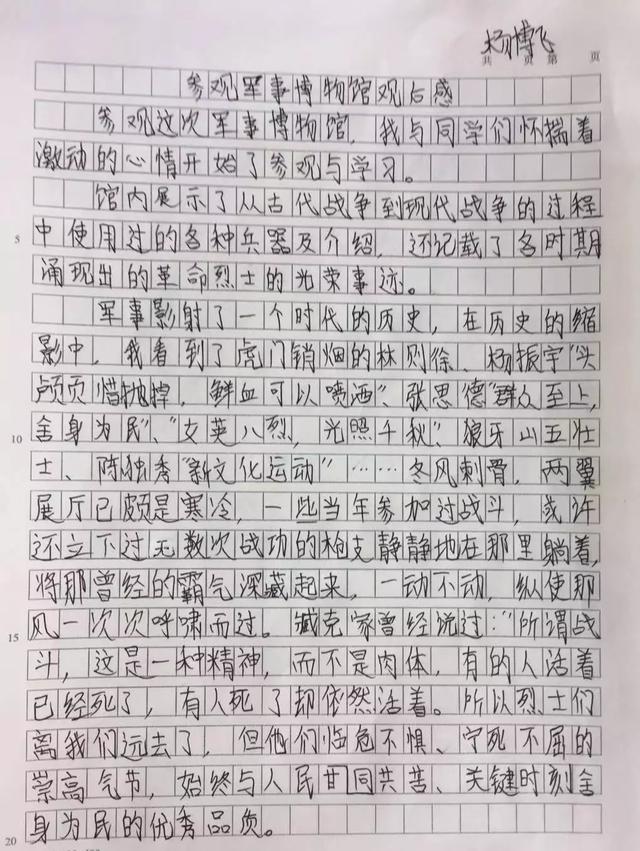 杨博飞
共 页 第 页
参观军事博物馆观后感
参观这次军事博物馆，我与同学们怀揣着
激动的心情开始了参观与学习。
馆内展示了从古代战争到现代战争的过程
5
中使用过的各种兵器及介绍，还记载了各时期
涌现出的革命烈士的光荣事迹。
军事影射了一个时代的历史，在历史的缩
影中，我看到了虎门销烟的林则徐、杨振宇“头
颅页惜抛掉，鲜血可以喷洒”、张思德“群众至上，
10
舍身为民”、“女英八烈，光照千秋”、狼牙山五壮
士、陈独秀“新文化运动”……冬风刺骨，两翼
展厅已颇是寒冷，一些当年参加过战斗，或许
还立下过无数次战功的枪支静静地在那里躺着，
将那曾经的霸气深藏起来，一动不动，纵使那
15
风一次次呼啸而过。臧克家曾经说过：“所谓战
斗，这是一种精神，而不是肉体，有的人活着
已经死了，有人死了却依然活着。所以烈士们
离我们远去了，但他们临危不惧、宁死不屈的
崇高气节，始终与人民甘同共苦、关键时刻舍
20
身为民的优秀品质。